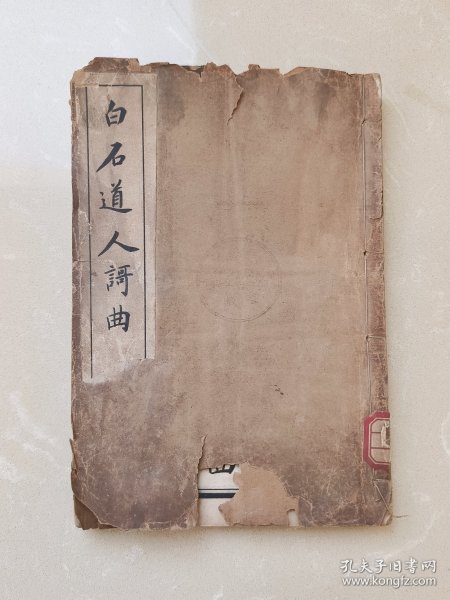 白石道人謌曲
曲
孔夫子旧书网
www.kongfz.com